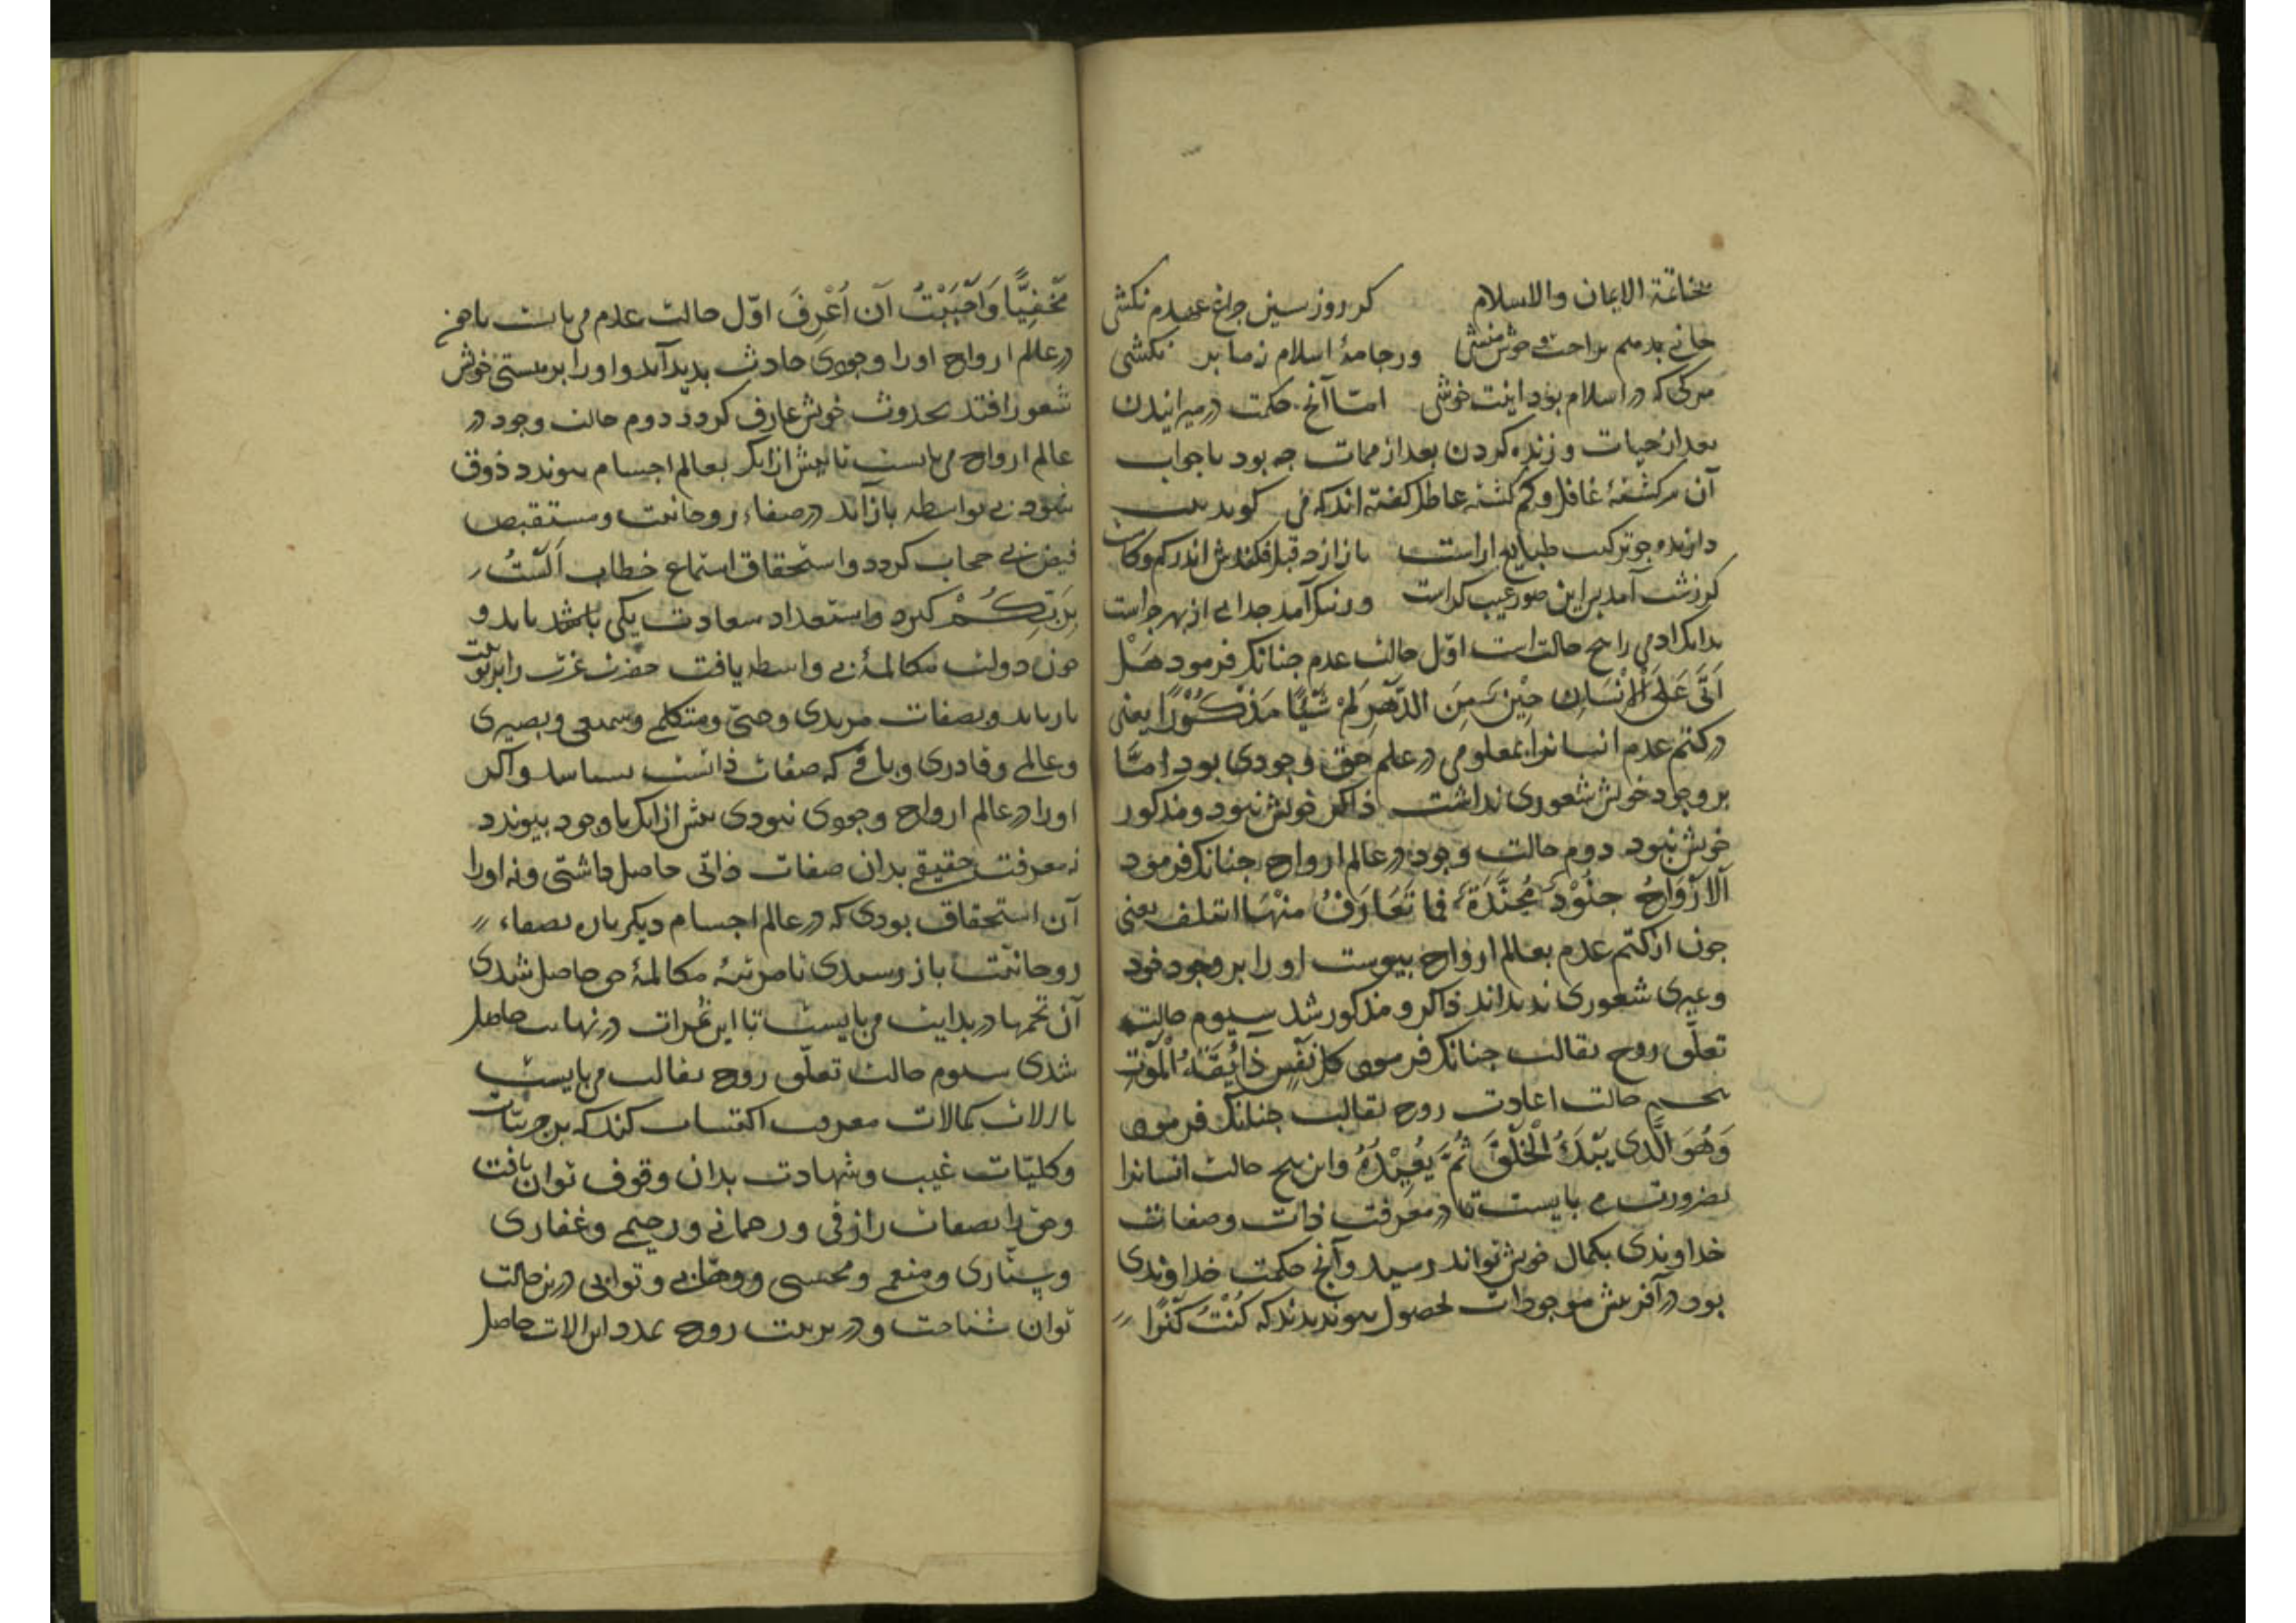 بخاتمة الایمان والاسلام کر روز سین چراغ عهدم نکشی
جانی بدهم براحت و خوش منشی ورجامهٔ اسلام ز ما بر نکشی
مرکی که در اسلام بود اینت خوشی امّا آنچ حکمت در میرانیدن
بعد از حیات و زنده کردن بعد از ممات چه بود تا جواب
آن سرکشتهٔ غافل و کم کشتهٔ عاطل کفته اند که می کوید بیت
دارنده چو ترکیب طبایع اراست باز از چه قبل فکندش اندر کم و کاست
کر زشت آمد بس این صور عیب کراست ور نیک آمد خرابی از بهر چراست
بدانک ادمی را پنج حالت است اوّل حالت عدم چنانک فرمود هَلْ
اَتَی عَلَی الْاِنْسَانِ حِیْنٌ مِنَ الدَّهْرِ لَمْ شَیْئًا مَذْکُوْرًا یعنی
در کتم عدم انسانرا بمعلومی در علم حق وجودی بود امّا
بر وجود خویش شعوری نداشت ذاکر خویش نبود و مذکور
خویش نبود دوم حالت وجود در عالم ارواح چنانک فرمود
اَلاَرْوَاحُ جنُوْدٌ مُجَنَّدَةٌ فما تَعَارَفُ مِنْهَا ائتلف یعنی
چون از کتم عدم بعالم ارواح پیوست او را بر وجود خود
وغیری شعوری پدید آمد ذاکر و مذکور شد سیوم حالت
تعلّق روح بقالب چنانک فرمود کل نَفْسٍ ذَائِقَةُ الْمَوْتِ
پنجم حالت اعادت روح بقالب چنانک فرمود
وَهُوَ الَّذی یَبْدَءُ الْخَلْقَ ثُمَّ یُعِیْدُهُ واین پنج حالت انسانرا
بضرورت می بایست تا در معرفت ذات وصفات
خداوندی بکمال خویش تواند رسید وآنچ حکمت خداوندی
بود در آفرینش موجودات بحصول پیوندد که کُنْتُ کَنْزًا
مَخْفِیًّا وَاَحْبَبْتُ اَنْ اُعْرِفَ اوّل حالت عدم می بایست تا چون
در عالم ارواح او را وجودی حادث پدید آید و او را بر هستی خویش
شعور افتد بحدوث خویش عارف کردد دوم حالت وجود در
عالم ارواح می بایست تا پیش از انک بعالم اجسام پیوندد ذوق
شهود بی واسطه باز آید در صفاء روحانیت ومستفیض
فیض بی حجاب کردد واستحقاق استماع خطاب اَلَسْتُ
بِرَبِّکُمْ کیرد واستعداد سعادت یکی باشد یابد و
چون دولت مکالمهٔ بی واسطه یافت حضرت عزت را بربوبیت
باز یابد وبصفات مریدی وحیّی ومتکلمی وسمیعی وبصیری
وعالمی وقادری وباقی که صفات ذاتست بشناسد واکر
او را در عالم ارواح وجودی نبودی پیش از انک با وجود پیوندد
نه معرفت حقیقی بدان صفات ذاتی حاصل داشتی ونه او را
آن استحقاق بودی که در عالم اجسام دیکر باره بصفاء
روحانیّت باز رسیدی تا مرتبهٔ مکالمهٔ حق حاصل شدی
آن تخمها در بدایت می بایست تا این ثمرات در نهایت حاصل
شدی سیوم حالت تعلّق روح بقالب می بایست
تا آلات کمالات معرفت اکتساب کند که بر جزیّات
وکلیّات غیب وشهادت بدان وقوف توان یافت
وحق را بصفات رازقی ورحمانی ورحیمی وغفاری
وستّاری ومنعمی ومحسنی ووهّابی وتوابی درین حالت
توان شناخت ودر تربیت روح بمدد این الات حاصل